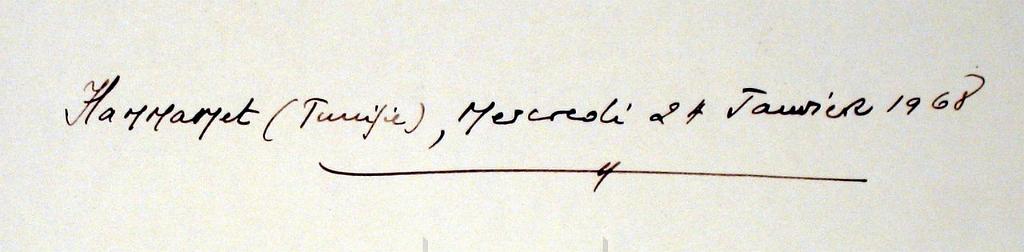 Hammamet (Tunisie), Mercredi 24 Janvier 1968